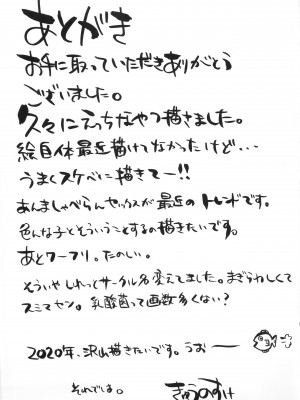 あとがき
お手に取っていただきありがとう
ございました。
久々にえっちなやつ描きました。
絵自体最近描けてなかったけど…
うまくスケベに描きてー!!
あんましゃべらんセックスが最近のトレンドです。
色んな子とそういうことするの描きたいです。
あとワーフリ。たのしい。
そういやしれっとサークル名変えてました。まぎらわしくて
スミマセン。乳酸菌って画数多くない?
2020年、沢山描きたいです。うおーー
それでは。 きゅうのすけ